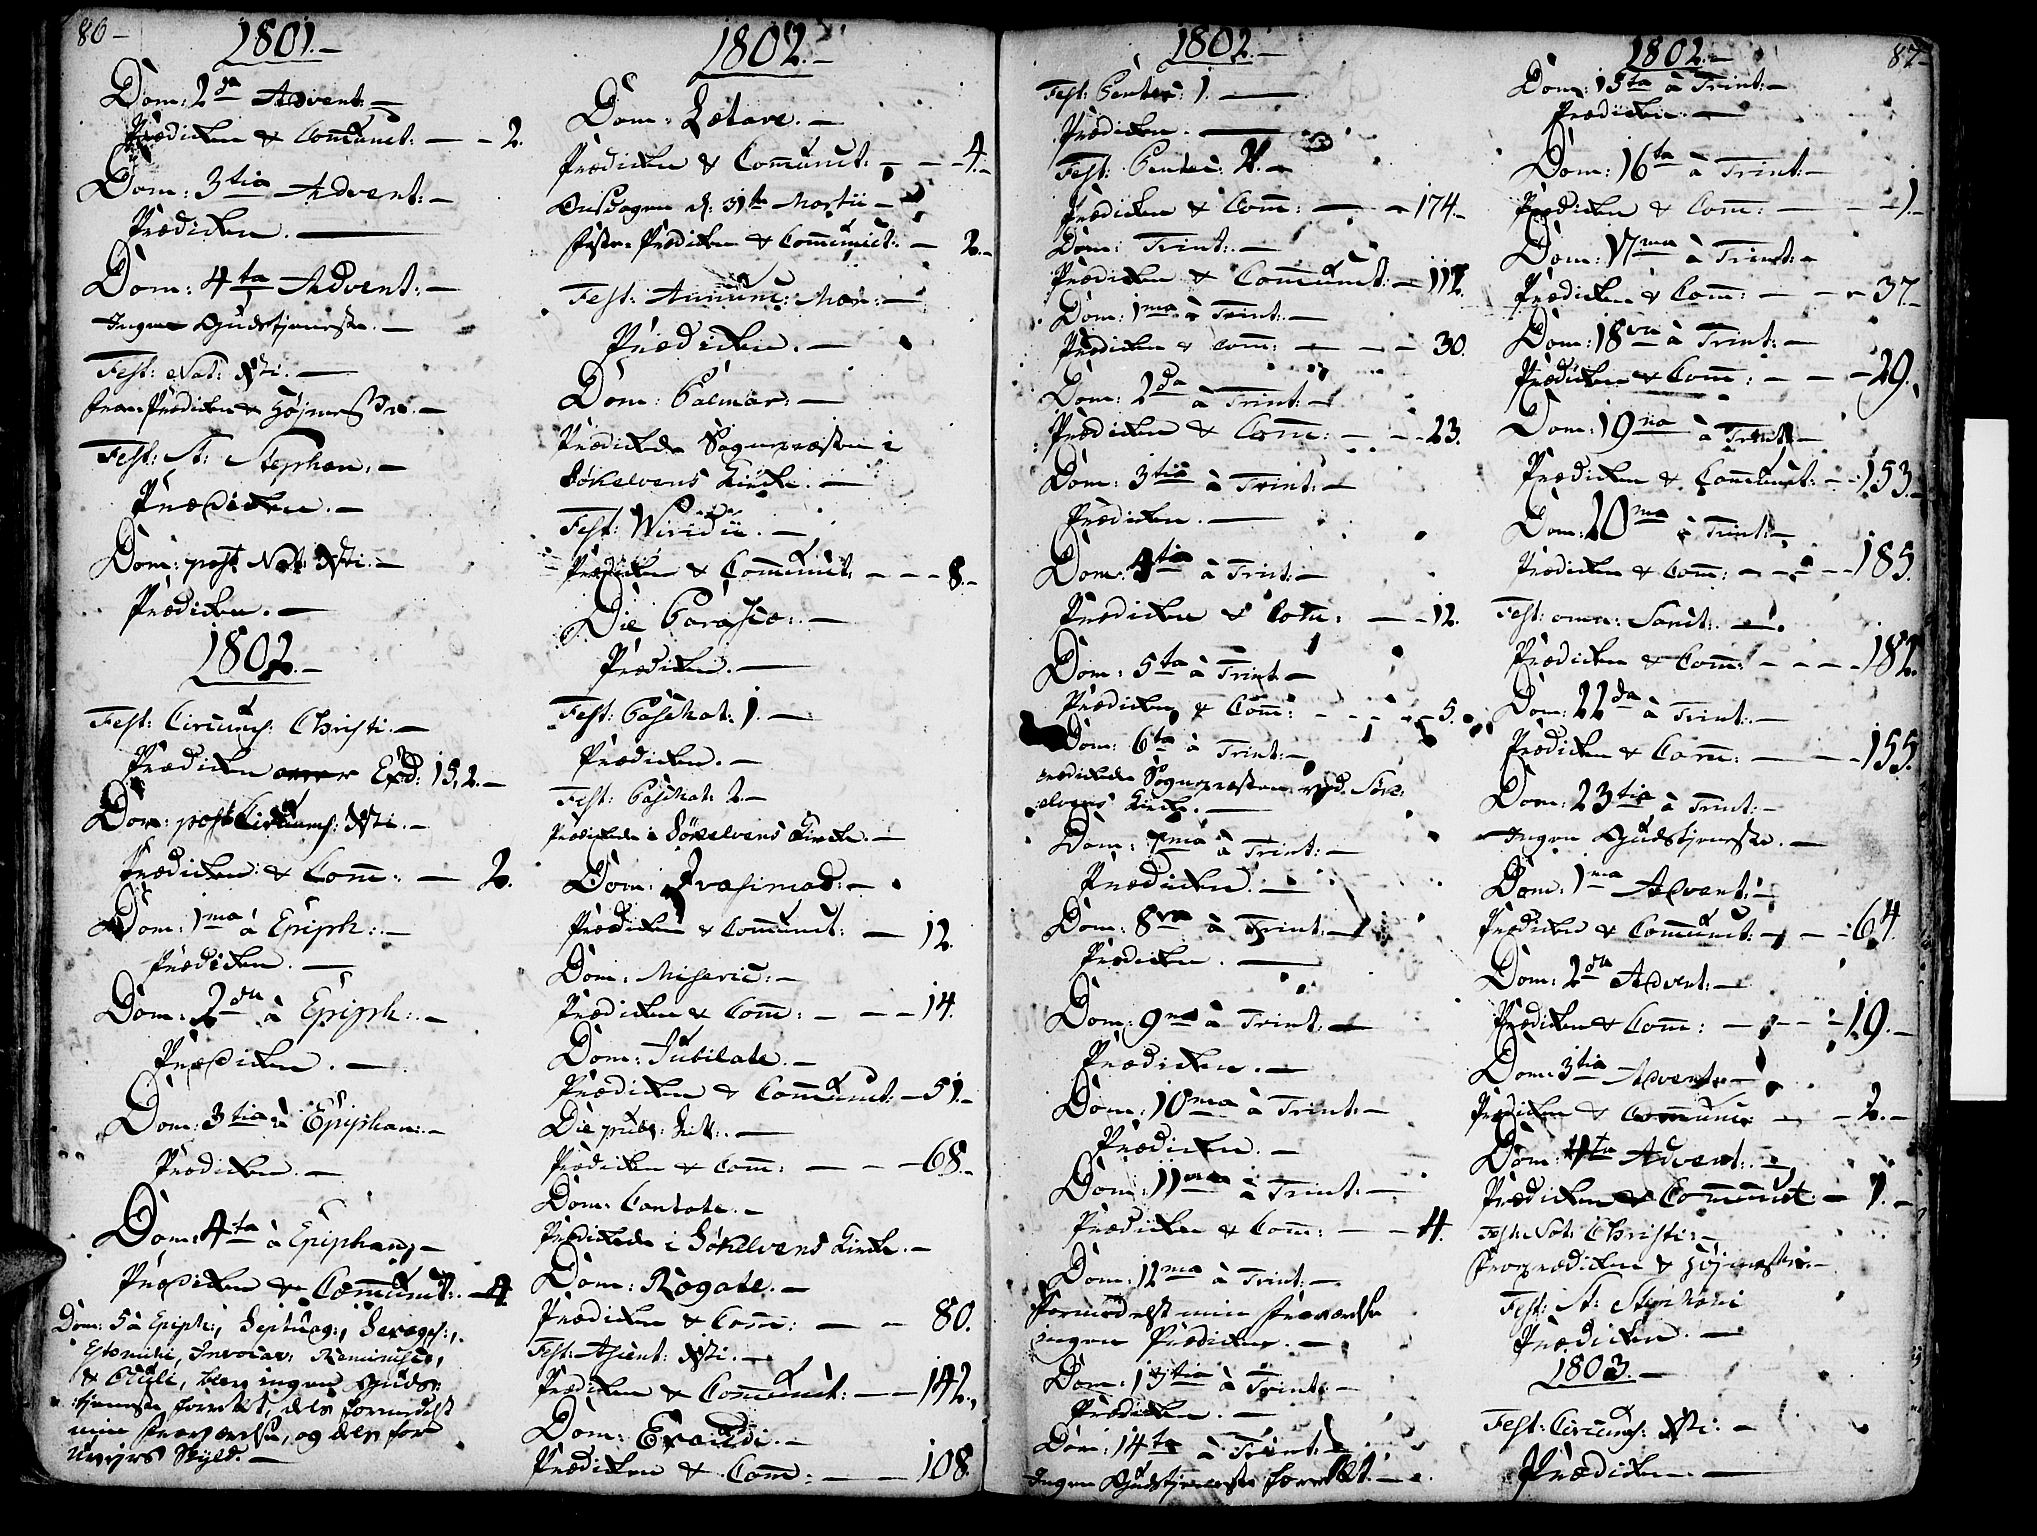 86 -
1801. -
Dom: 2da Advent: -
Prædiken & Communict: - - 2.
Dom: 3tia Advent: -
Prædiken. -
Dom: 4ta Advent: -
Ingen Gudstjeneste. -
Fest: Nat: Xsti. -
Prædiken & Højmesse. -
Fest: St: Stephan: -
Prædiken. -
Dom: post Nat: Xsti. -
Prædiken. -
1802. -
Fest: Circumcs: Christi. -
Prædiken over Esd: 15,2. -
Dom: post Circumcs: Xsti. -
Prædiken & Comm: - 2.
Dom: 1ma à Epiph: -
Prædiken. -
Dom: 2da à Epiph: -
Prædiken. -
Dom: 3tia à Epiphan: -
Prædiken. -
Dom: 4ta à Epiphan: -
Prædiken & Communict: - 4.
Dom: 5 à Epiph:, Septuag:, Sexages:,
Estomihi, Invocav: Reminisc:,
& Oculi, blev ingen Guds-
tjeneste forrettet, dels formedelst
min Fraværelse, og dels for
Uvejrs Skyld. -
1802. -
Dom: Lætare. -
Prædiken & Communict: - - 4. -
Onsdagen d: 31te Martii -
Faste-Prædiken & Communict: - 2. -
Fest: Annunc: Mar: -
Prædiken. -
Dom: Palmar: -
Prædikede Sognepræsten i
Sökelvens Kirke. -
Fest: Viridii. -
Prædiken & Communict: - - - 8. -
Die Parasce: -
Prædiken. -
Fest: Paschat: 1. -
Prædiken. -
Fest: Paschat: 2. -
Prædikede i Sökelvens Kirke. -
Dom: Qvasimod: -
Prædiken & Communict: - 12.
Dom: Miseric: -
Prædiken & Comm: - - - 14.
Dom: Jubilate. -
Prædiken & Communict: - 51. -
Die publ: -
Prædiken & Comm: - - - 68. -
Dom: Cantate. -
Prædikede i Sökelvens Kirke. -
Dom: Rogate. -
Prædiken & Comm: - - 80.
Fest: Ascent: Xsti. -
Prædiken & Communict: - - 142.
Dom: Exaudi. -
Prædiken & Comm: - - 108.
1802. -
Fest: Pentec: 1. -
Prædiken. -
Fest: Pentec: 2. -
Prædiken & Comm: - - 174. -
Dom: Trint: -
Prædiken & Communict: - 112.
Dom: 1ma à Trint: -
Prædiken & Comm: - - - 30.
Dom: 2da à Trint: -
Prædiken & Comm: - - - 23.
Dom: 3tia à Trint: -
Prædiken. -
Dom: 4ta à Trint: -
Prædiken & Com: - - 12.
Dom: 5ta à Trint: -
Prædiken & Comm: - - - - 5.
Dom: 6ta à Trint: -
Prædikede Sognepræsten ved Sök-
elvens Kirke. -
Dom: 7ma à Trint: -
Prædiken. -
Dom: 8va à Trint: -
Prædiken. -
Dom: 9na à Trint: -
Prædiken. -
Dom: 10ma à Trint: -
Prædiken. -
Dom: 11ma à Trint: -
Prædiken & Com: - - 4.
Dom: 12ma à Trint: -
Formedelst min Fraværelse
ingen Prædiken. -
Dom: 13tia à Trint: -
Prædiken. -
Dom: 14ta à Trint: -
Ingen Gudstjeneste forrettet. -
1802. -
87 -
Dom: 15ta à Trint: -
Prædiken. -
Dom: 16ta à Trint: -
Prædiken & Com: - - - 1. -
Dom: 17ma à Trint: -
Prædiken & Com: - - - 37. -
Dom: 18va à Trint: -
Prædiken & Com: - - - 29.
Dom: 19na à Trint: -
Prædiken & Communict: - - 153. -
Dom: 20ma à Trint: -
Prædiken & Com: - - - - 185.
Fest: omn: Sanct: -
Prædiken & Com: - - - - 182.
Dom: 22da à Trint: -
Prædiken & Com: - - - 155.
Dom: 23tia à Trint: -
Ingen Gudstjeneste. -
Dom: 1ma Advent: -
Prædiken & Communict: - - - 64.
Dom: 2da Advent: -
Prædiken & Comm: - - - 19. -
Dom: 3tia Advent: -
Prædiken & Communic: - - 2. -
Dom: 4ta Advent: -
Prædiken & Communict: - 1. -
Fest: Nat: Christi: -
Froprædiken & Højmesse. -
Fest: St: Stephani
Prædiken. -
1803. -
Fest: Circumcs: Xsti: -
Prædiken. -